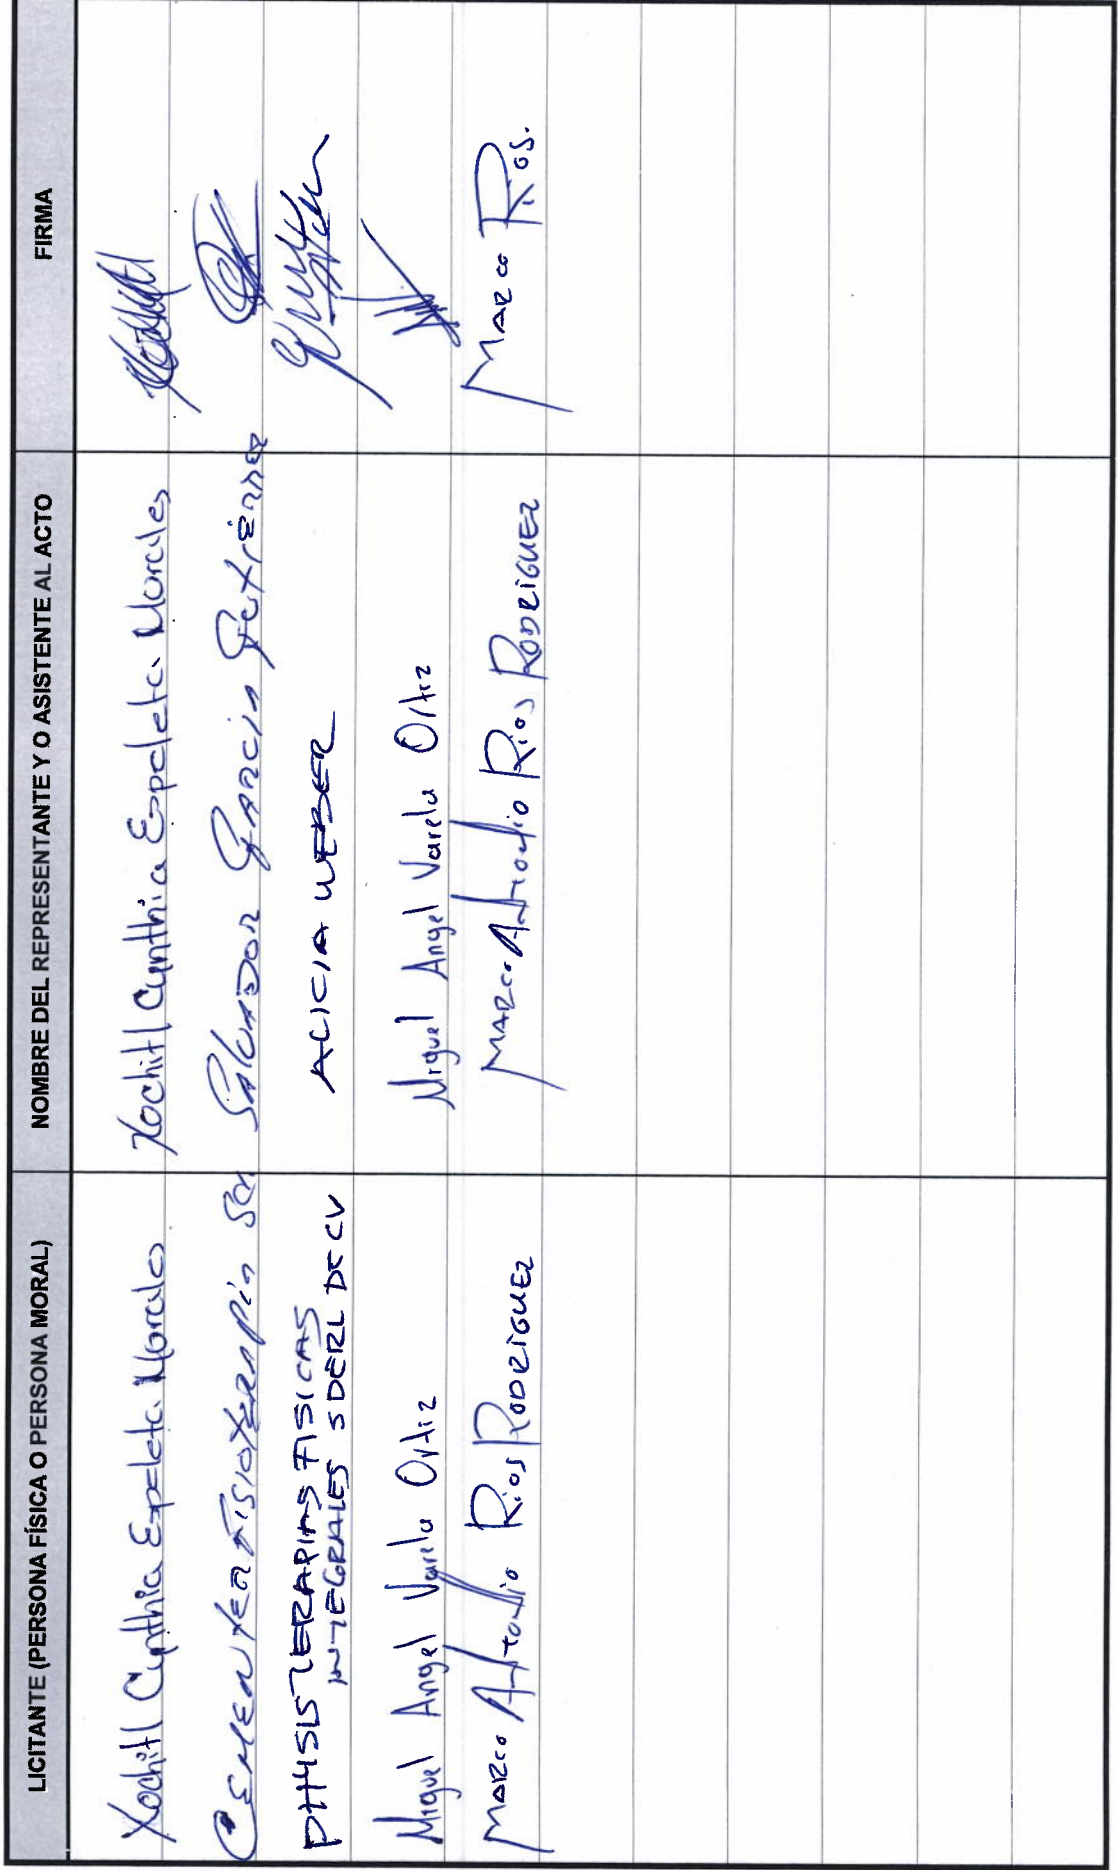 LICITANTE (PERSONA FÍSICA O PERSONA MORAL)
NOMBRE DEL REPRESENTANTE Y O ASISTENTE AL ACTO
FIRMA
Xochitl Cynthia Espeleta Morales
Xochitl Cynthia Espeleta Morales
SALVADOR GARCIA Gutiérrez
PHYSIS TERAPIAS FISICAS
INTEGRALES S DE RL DE CV
ALICIA WEBER
Miguel Angel Varela Ortiz
Miguel Angel Varela Ortiz
MARCO Antonio Rios RODRIGUEZ
MARCO Antonio Rios RODRIGUEZ
MARCO Rios.